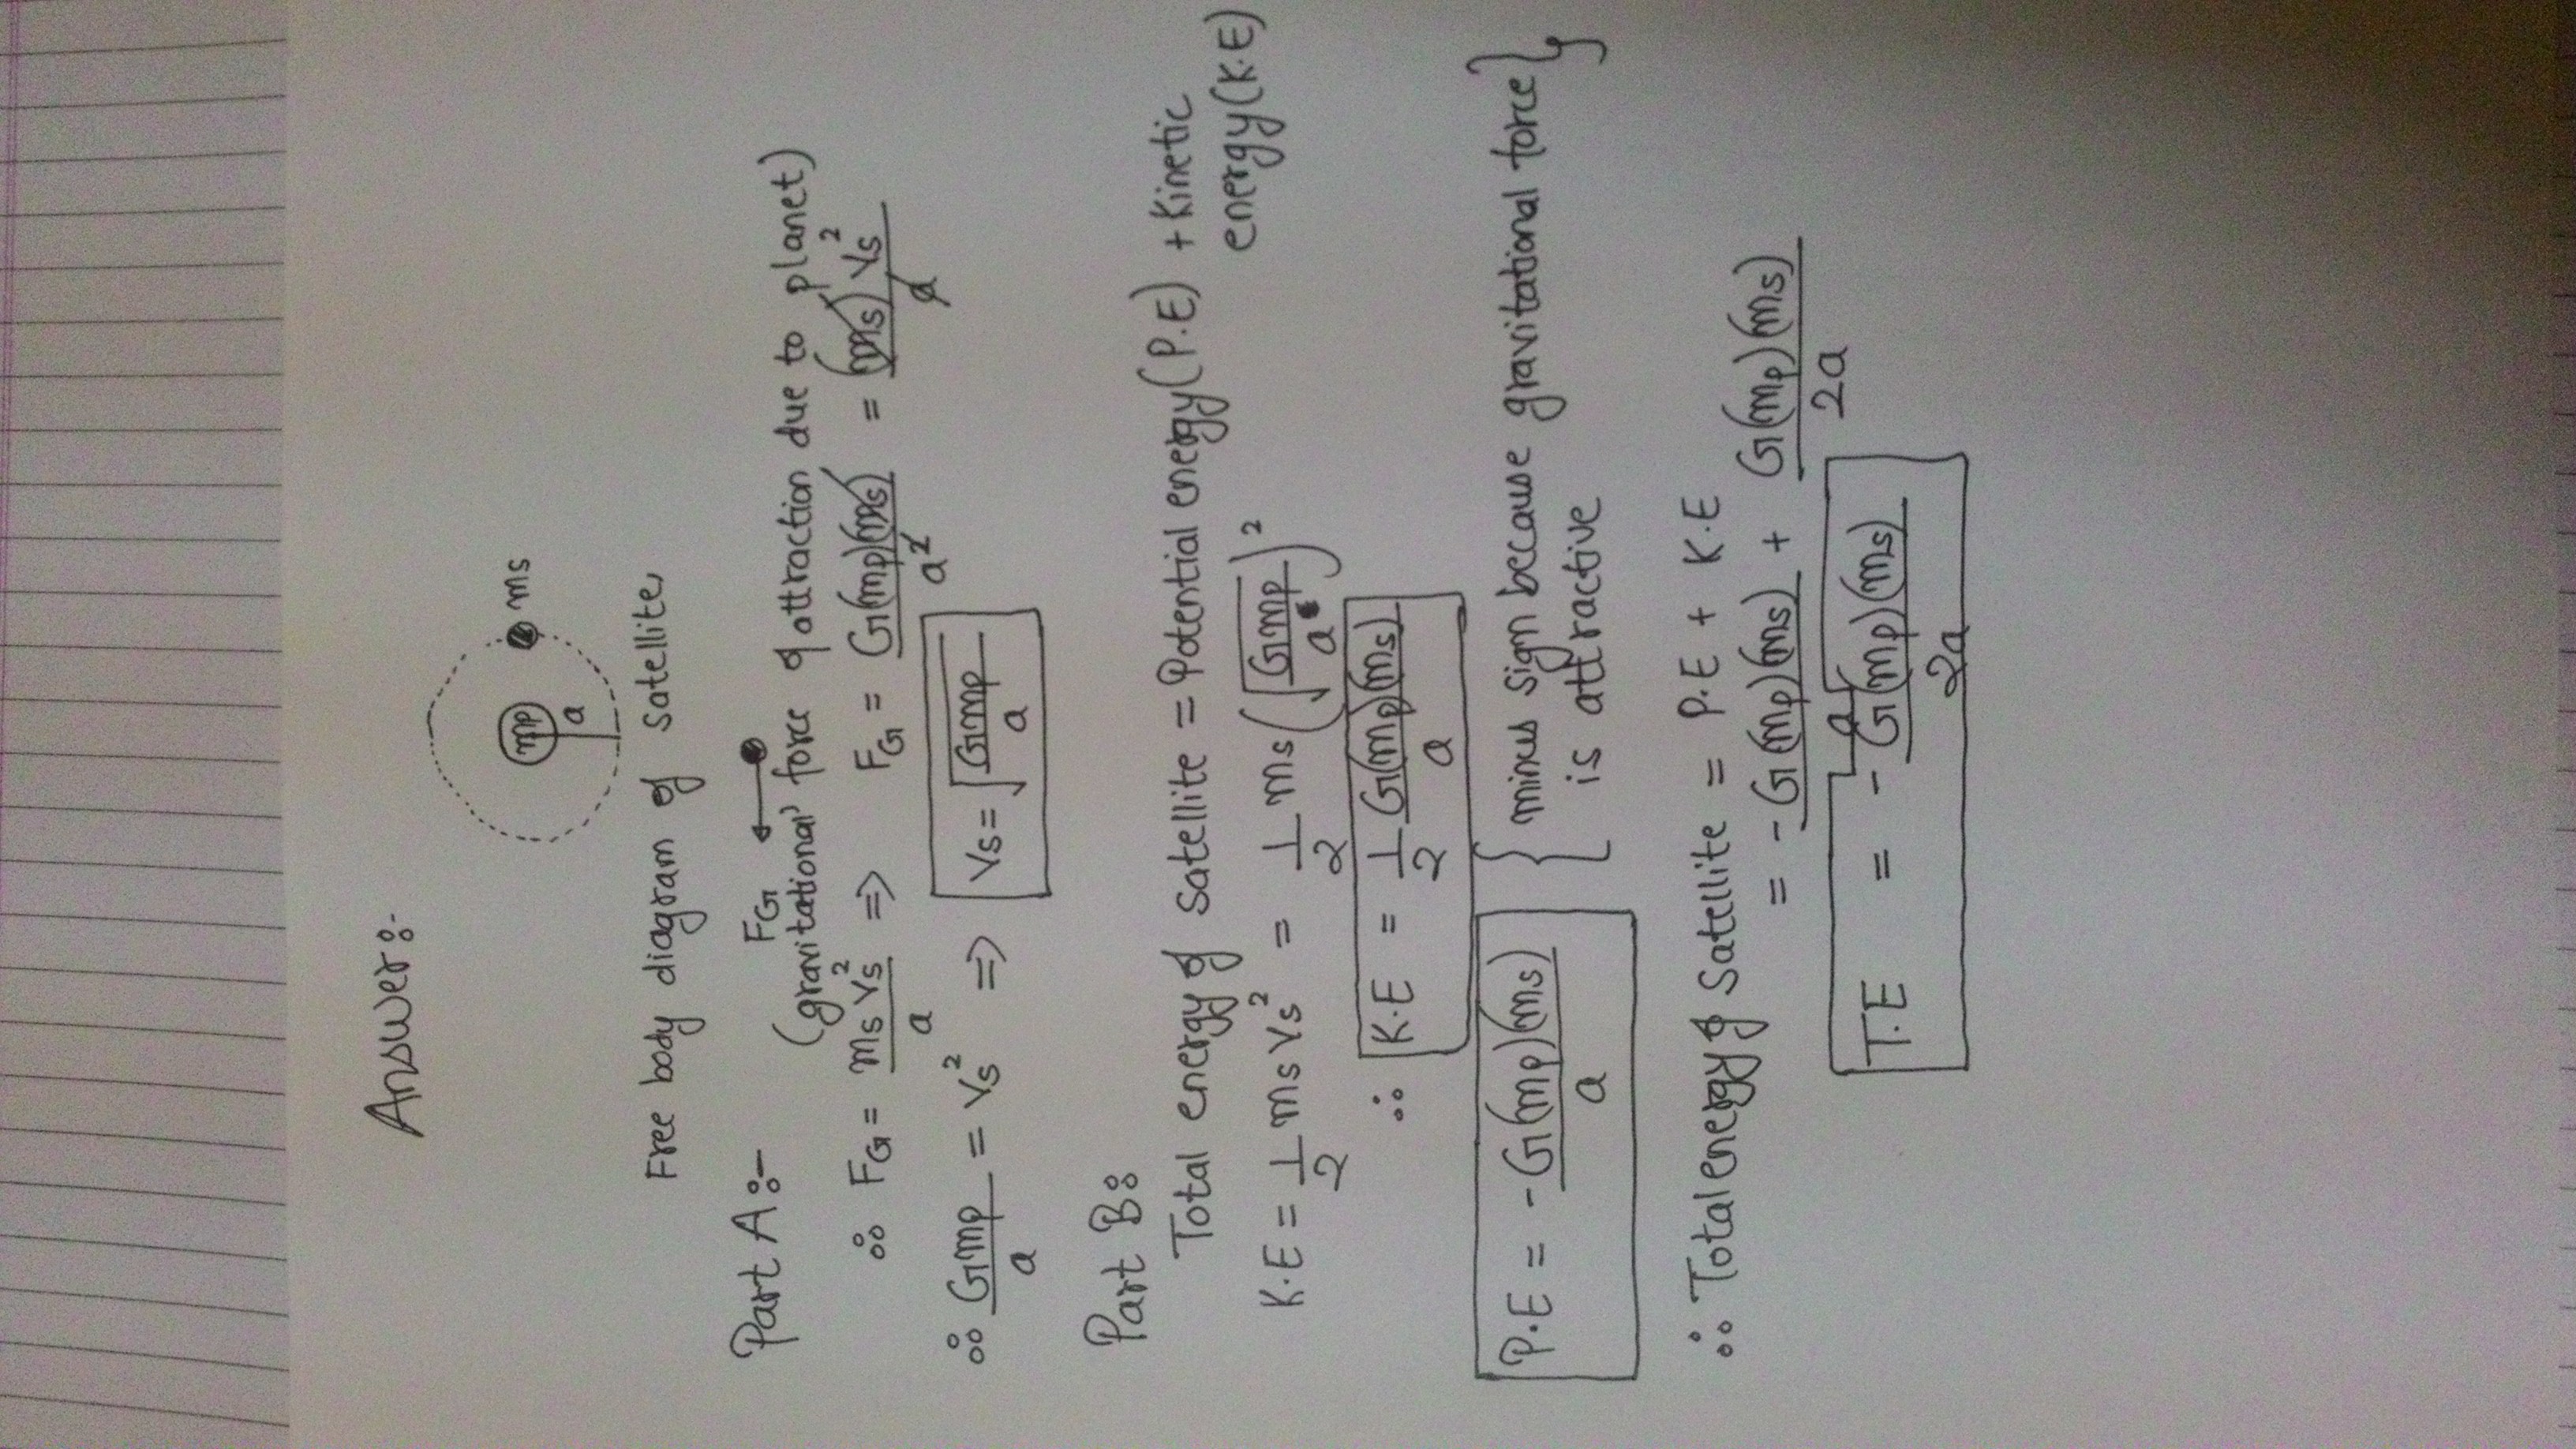 Answer:-
mp
a
ms
Free body diagram of satellite
Part A:-
FG
(gravitational force of attraction due to planet)
∴ FG = ms vs² / a ⇒ FG = G(mp)(ms) / a² = (ms) vs² / a
∴ Gmp / a = vs² ⇒ vs = √(Gmp / a)
Part B:
Total energy of satellite = Potential energy(P.E) + Kinetic
energy(K.E)
K.E = 1/2 ms vs² = 1/2 ms (√(Gmp / a))²
∴ K.E = 1/2 G(mp)(ms) / a
P.E = - G(mp)(ms) / a { minus sign because gravitational force }
is attractive
∴ Total energy of satellite = P.E + K.E
= - G(mp)(ms) / a + G(mp)(ms) / 2a
T.E = - G(mp)(ms) / 2a